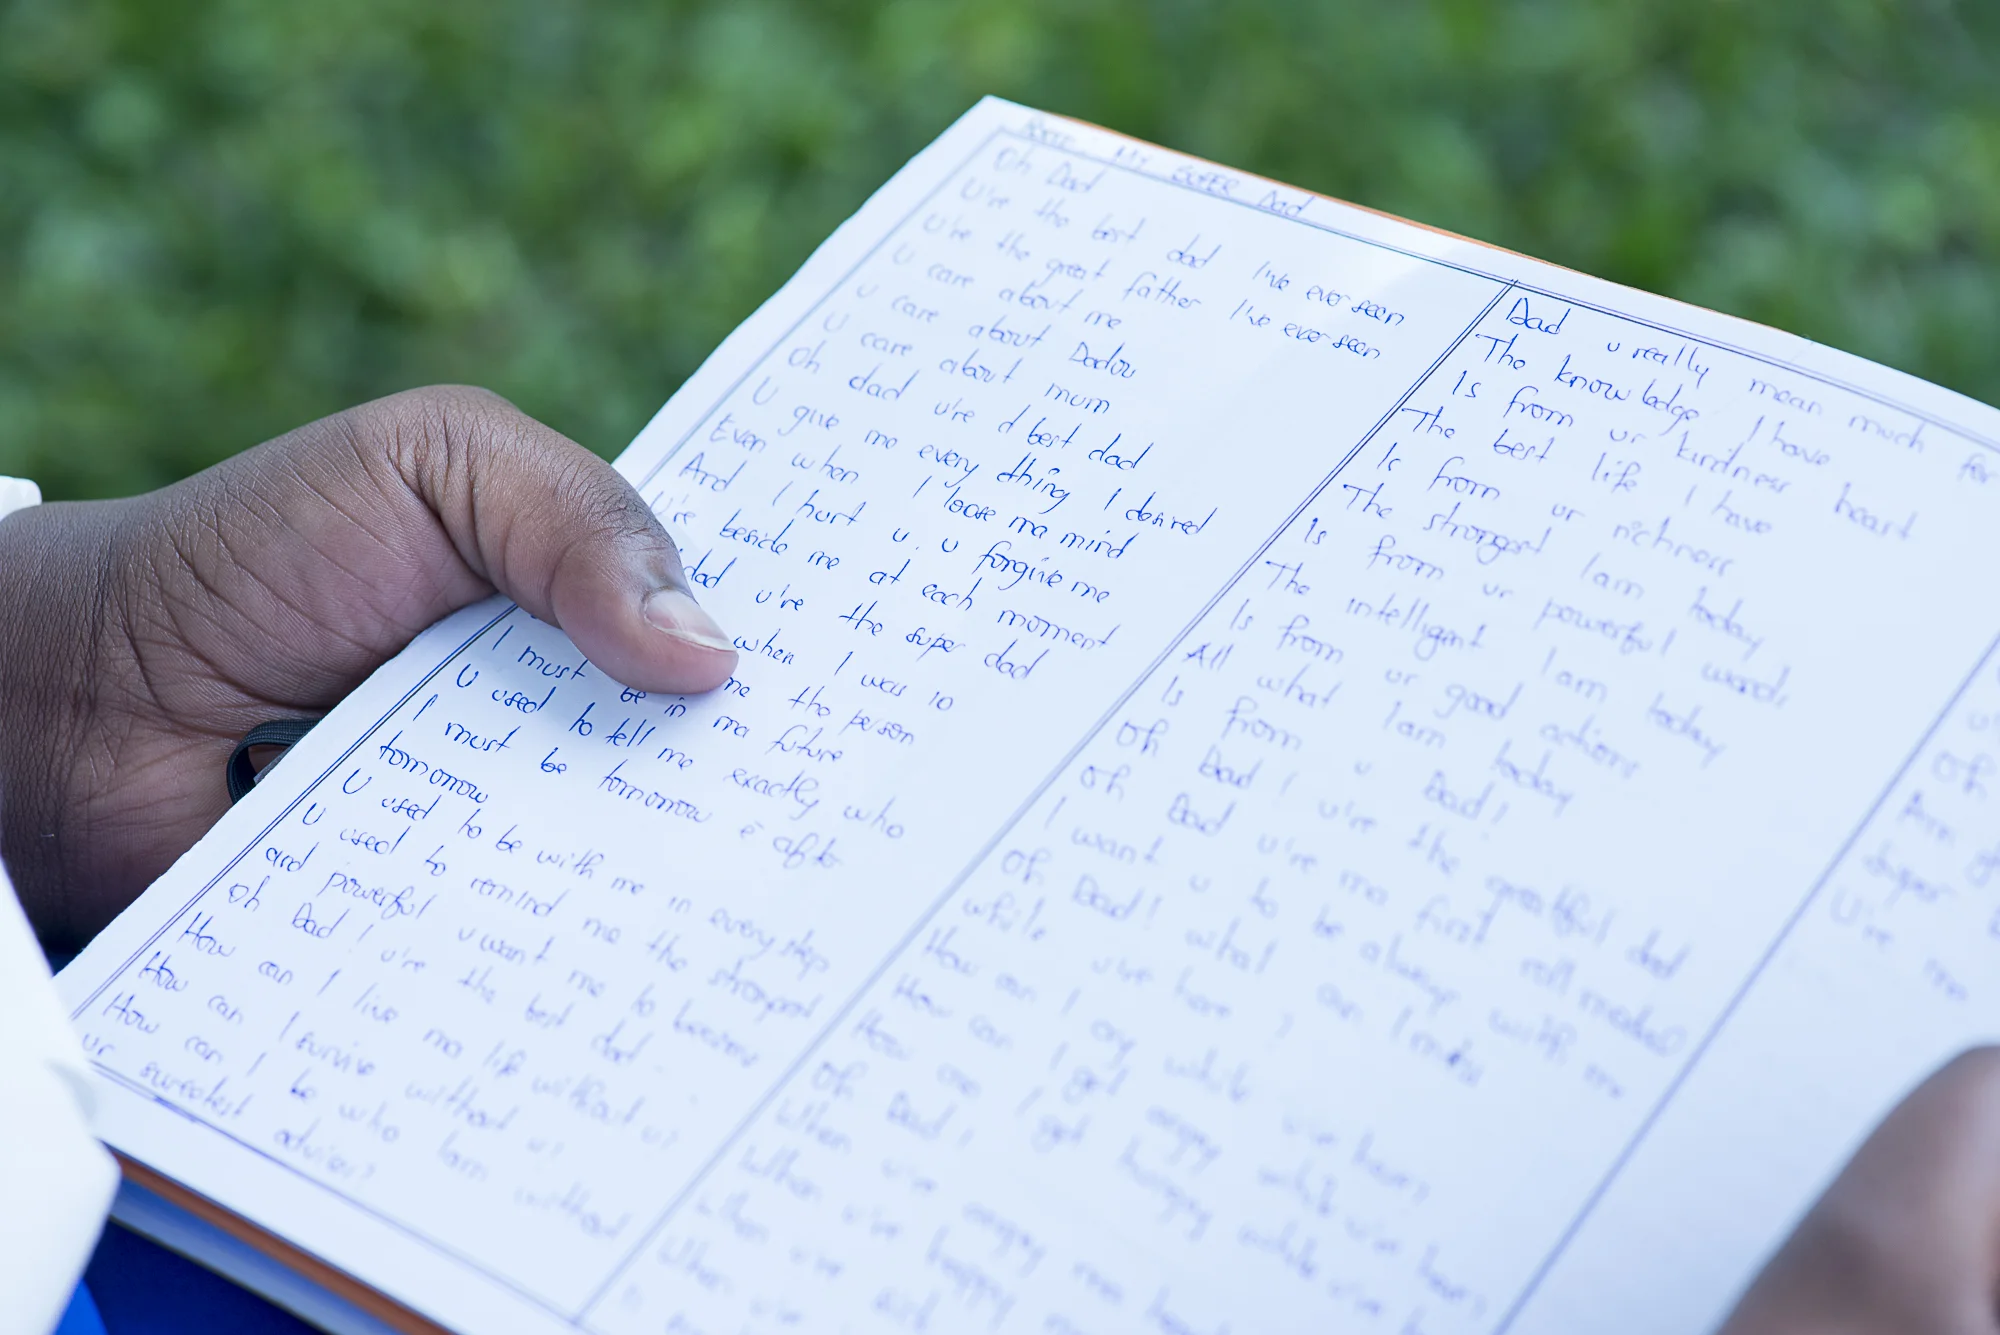 My SUPER Dad
Oh Dad
U're the best dad I've ever seen
U're the great father I've ever seen
U care about me
U care about Dadou
U care about mum
Oh dad u're d best dad
U give me every thing I desired
Even when I loose ma mind
And I hurt u. u forgive me
U're beside me at each moment
dad u're the super dad
when I was 10
me the person
I must be in ma future
U used to tell me exactly who
I must be tomorrow e after
tomorrow
U used to be with me in every step
U used to remind me the strongest
and powerful u want me to become
Oh Dad! u're the best dad
How can I live ma life without u?
How can I survive without u?
How can I be who I am without
ur sweetest advice?
Dad u really mean much for
The knowledge I have
Is from ur kindness heart
The best life I have
Is from ur richness
The strongest I am today
Is from ur powerful words
The intelligent I am today
Is from ur good actions
All what I am today
Is from u Dad!
Oh Dad! u're the greatful dad
Oh Dad u're ma first roll model
I want u to be always with me
Oh Dad! what can I
while u're here?
How can I cry while u're here?
How can I get angry while u're here?
How can I get hungry while u're here?
Oh Dad!
When u're angry
When u're happy
When u're
When u're
Oh
super
U're my